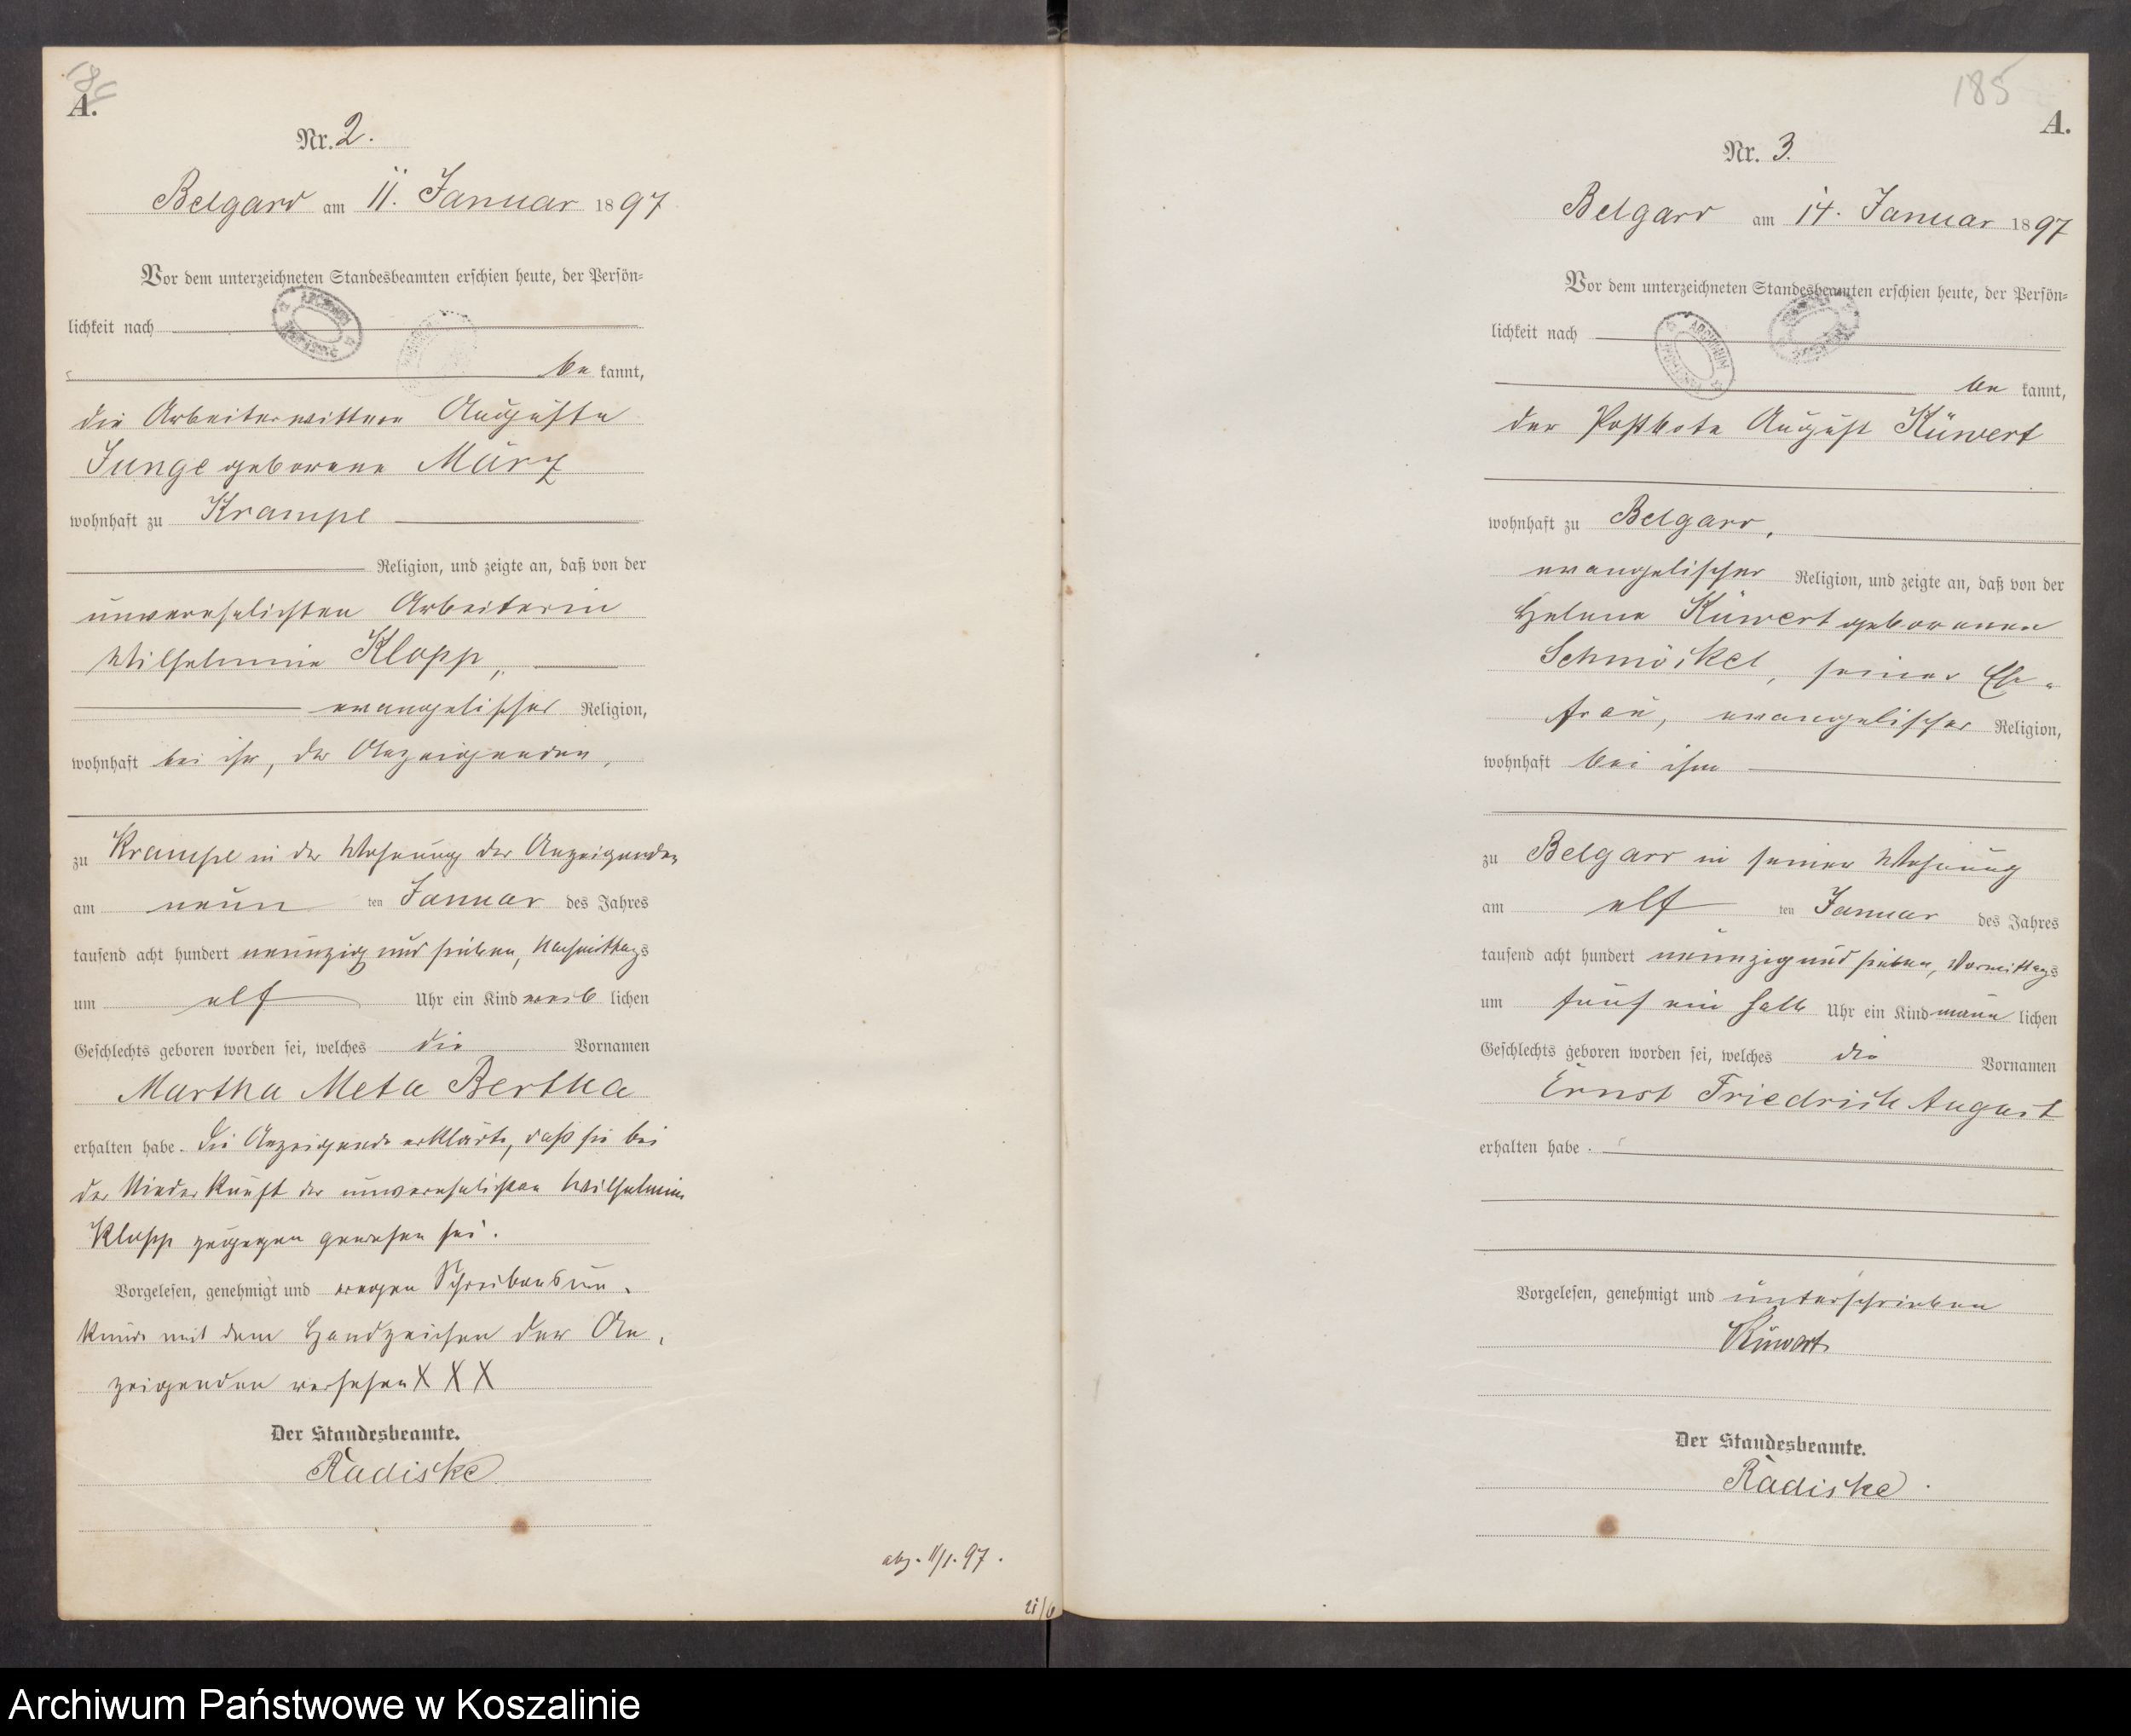 184
A.
Nr. 2.
Belgard am 11. Januar 1897
Vor dem unterzeichneten Standesbeamten erschien heute, der Persön-
lichkeit nach
be kannt,
die Arbeiterwittwe Auguste
Junge geborene März
wohnhaft zu Krampe
Religion, und zeigte an, daß von der
unverehelichten Arbeiterin
Wilhelmine Klopp,
evangelischer Religion,
wohnhaft bei ihr, der Anzeigenden,
zu Krampe in der Wohnung der Anzeigenden
am neun ten Januar des Jahres
tausend acht hundert neunzig und sieben, Nachmittags
um elf Uhr ein Kind weib lichen
Geschlechts geboren worden sei, welches die Vornamen
Martha Meta Bertha
erhalten habe. Die Anzeigende erklärte, daß sie bei
der Niederkunft der unverehelichten Wilhelmine
Klopp zugegen gewesen sei.
Vorgelesen, genehmigt und wegen Schreibensun-
kunde mit dem Handzeichen der An-
zeigenden versehen X X X
Der Standesbeamte.
Radiske
abg. 11/1. 97.
185
A.
Nr. 3.
Belgard am 14. Januar 1897
Vor dem unterzeichneten Standesbeamten erschien heute, der Persön-
lichkeit nach
ARCHIWUM
be kannt,
der Postbote August Küwert
wohnhaft zu Belgard,
evangelischer Religion, und zeigte an, daß von der
Helene Küwert geborenen
Schmöckel, seiner Ehe-
frau, evangelischer Religion,
wohnhaft bei ihm
zu Belgard in seiner Wohnung
am elf ten Januar des Jahres
tausend acht hundert neunzig und sieben, Vormittags
um fünf ein halb Uhr ein Kind männ lichen
Geschlechts geboren worden sei, welches die Vornamen
Ernst Friedrich August
erhalten habe.
Vorgelesen, genehmigt und unterschrieben
Küwert
Der Standesbeamte.
Radiske.
Archiwum Państwowe w Koszalinie